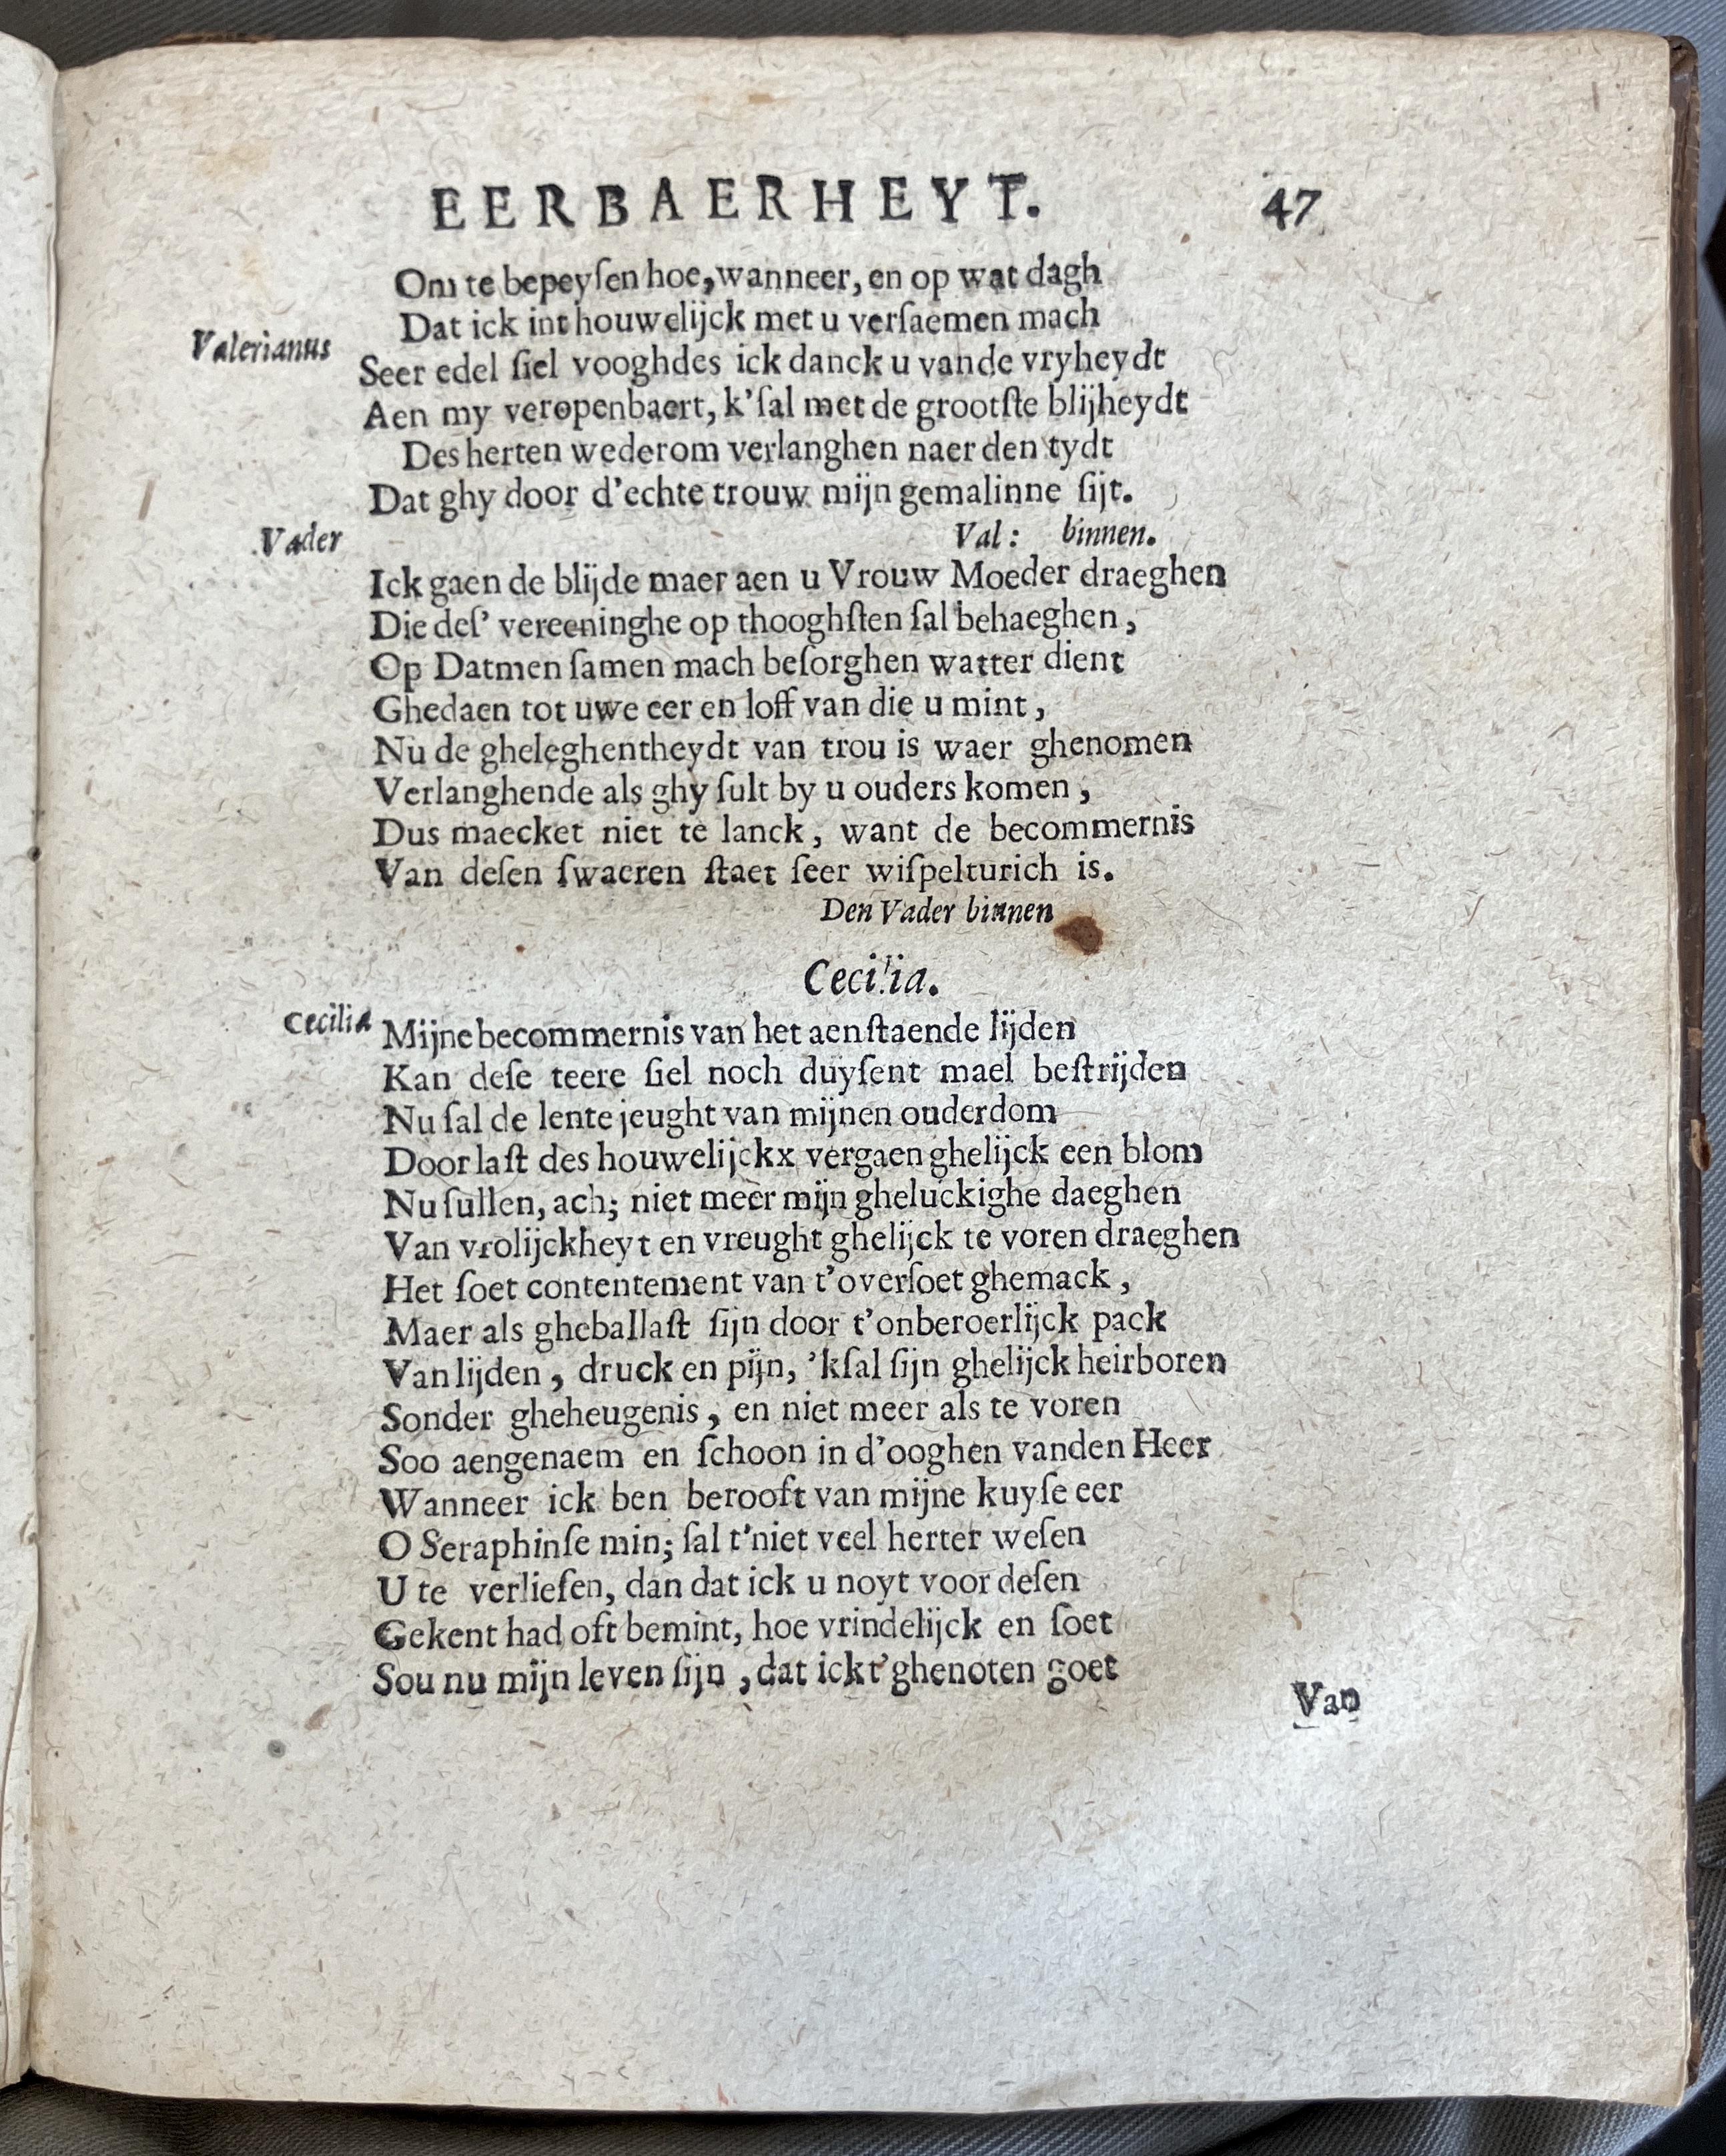 EERBAERHEYT. 47
Om te bepeyſen hoe, wanneer, en op wat dagh
Dat ick int houwelijck met u verſaemen mach
Valerianus
Seer edel ſiel vooghdes ick danck u vande vryheydt
Aen my veropenbaert, k'ſal met de grootſte blijheydt
Des herten wederom verlanghen naer den tydt
Dat ghy door d'echte trouw mijn gemalinne ſijt.
Val: binnen.
Vader
Ick gaen de blijde maer aen u Vrouw Moeder draeghen
Die deſ' vereeninghe op thooghſten ſal behaeghen,
Op Datmen ſamen mach beſorghen watter dient
Ghedaen tot uwe eer en loff van die u mint,
Nu de gheleghentheydt van trou is waer ghenomen
Verlanghende als ghy ſult by u ouders komen,
Dus maecket niet te lanck, want de becommernis
Van deſen ſwaeren ſtaet ſeer wiſpelturich is.
Den Vader binnen
Cecilia.
Cecilia Mijne becommernis van het aenſtaende lijden
Kan deſe teere ſiel noch duyſent mael beſtrijden
Nu ſal de lente jeught van mijnen ouderdom
Door laſt des houwelijckx vergaen ghelijck een blom
Nu ſullen, ach; niet meer mijn gheluckighe daeghen
Van vrolijckheyt en vreught ghelijck te voren draeghen
Het ſoet contentement van t'overſoet ghemack,
Maer als gheballaſt ſijn door t'onberoerlijck pack
Van lijden, druck en pijn, 'kſal ſijn ghelijck heirboren
Sonder gheheugenis, en niet meer als te voren
Soo aengenaem en ſchoon in d'ooghen vanden Heer
Wanneer ick ben berooft van mijne kuyſe eer
O Seraphinſe min; ſal t'niet veel herter weſen
U te verlieſen, dan dat ick u noyt voor deſen
Gekent had oft bemint, hoe vrindelijck en ſoet
Sou nu mijn leven ſijn, dat ick t'ghenoten goet
Van